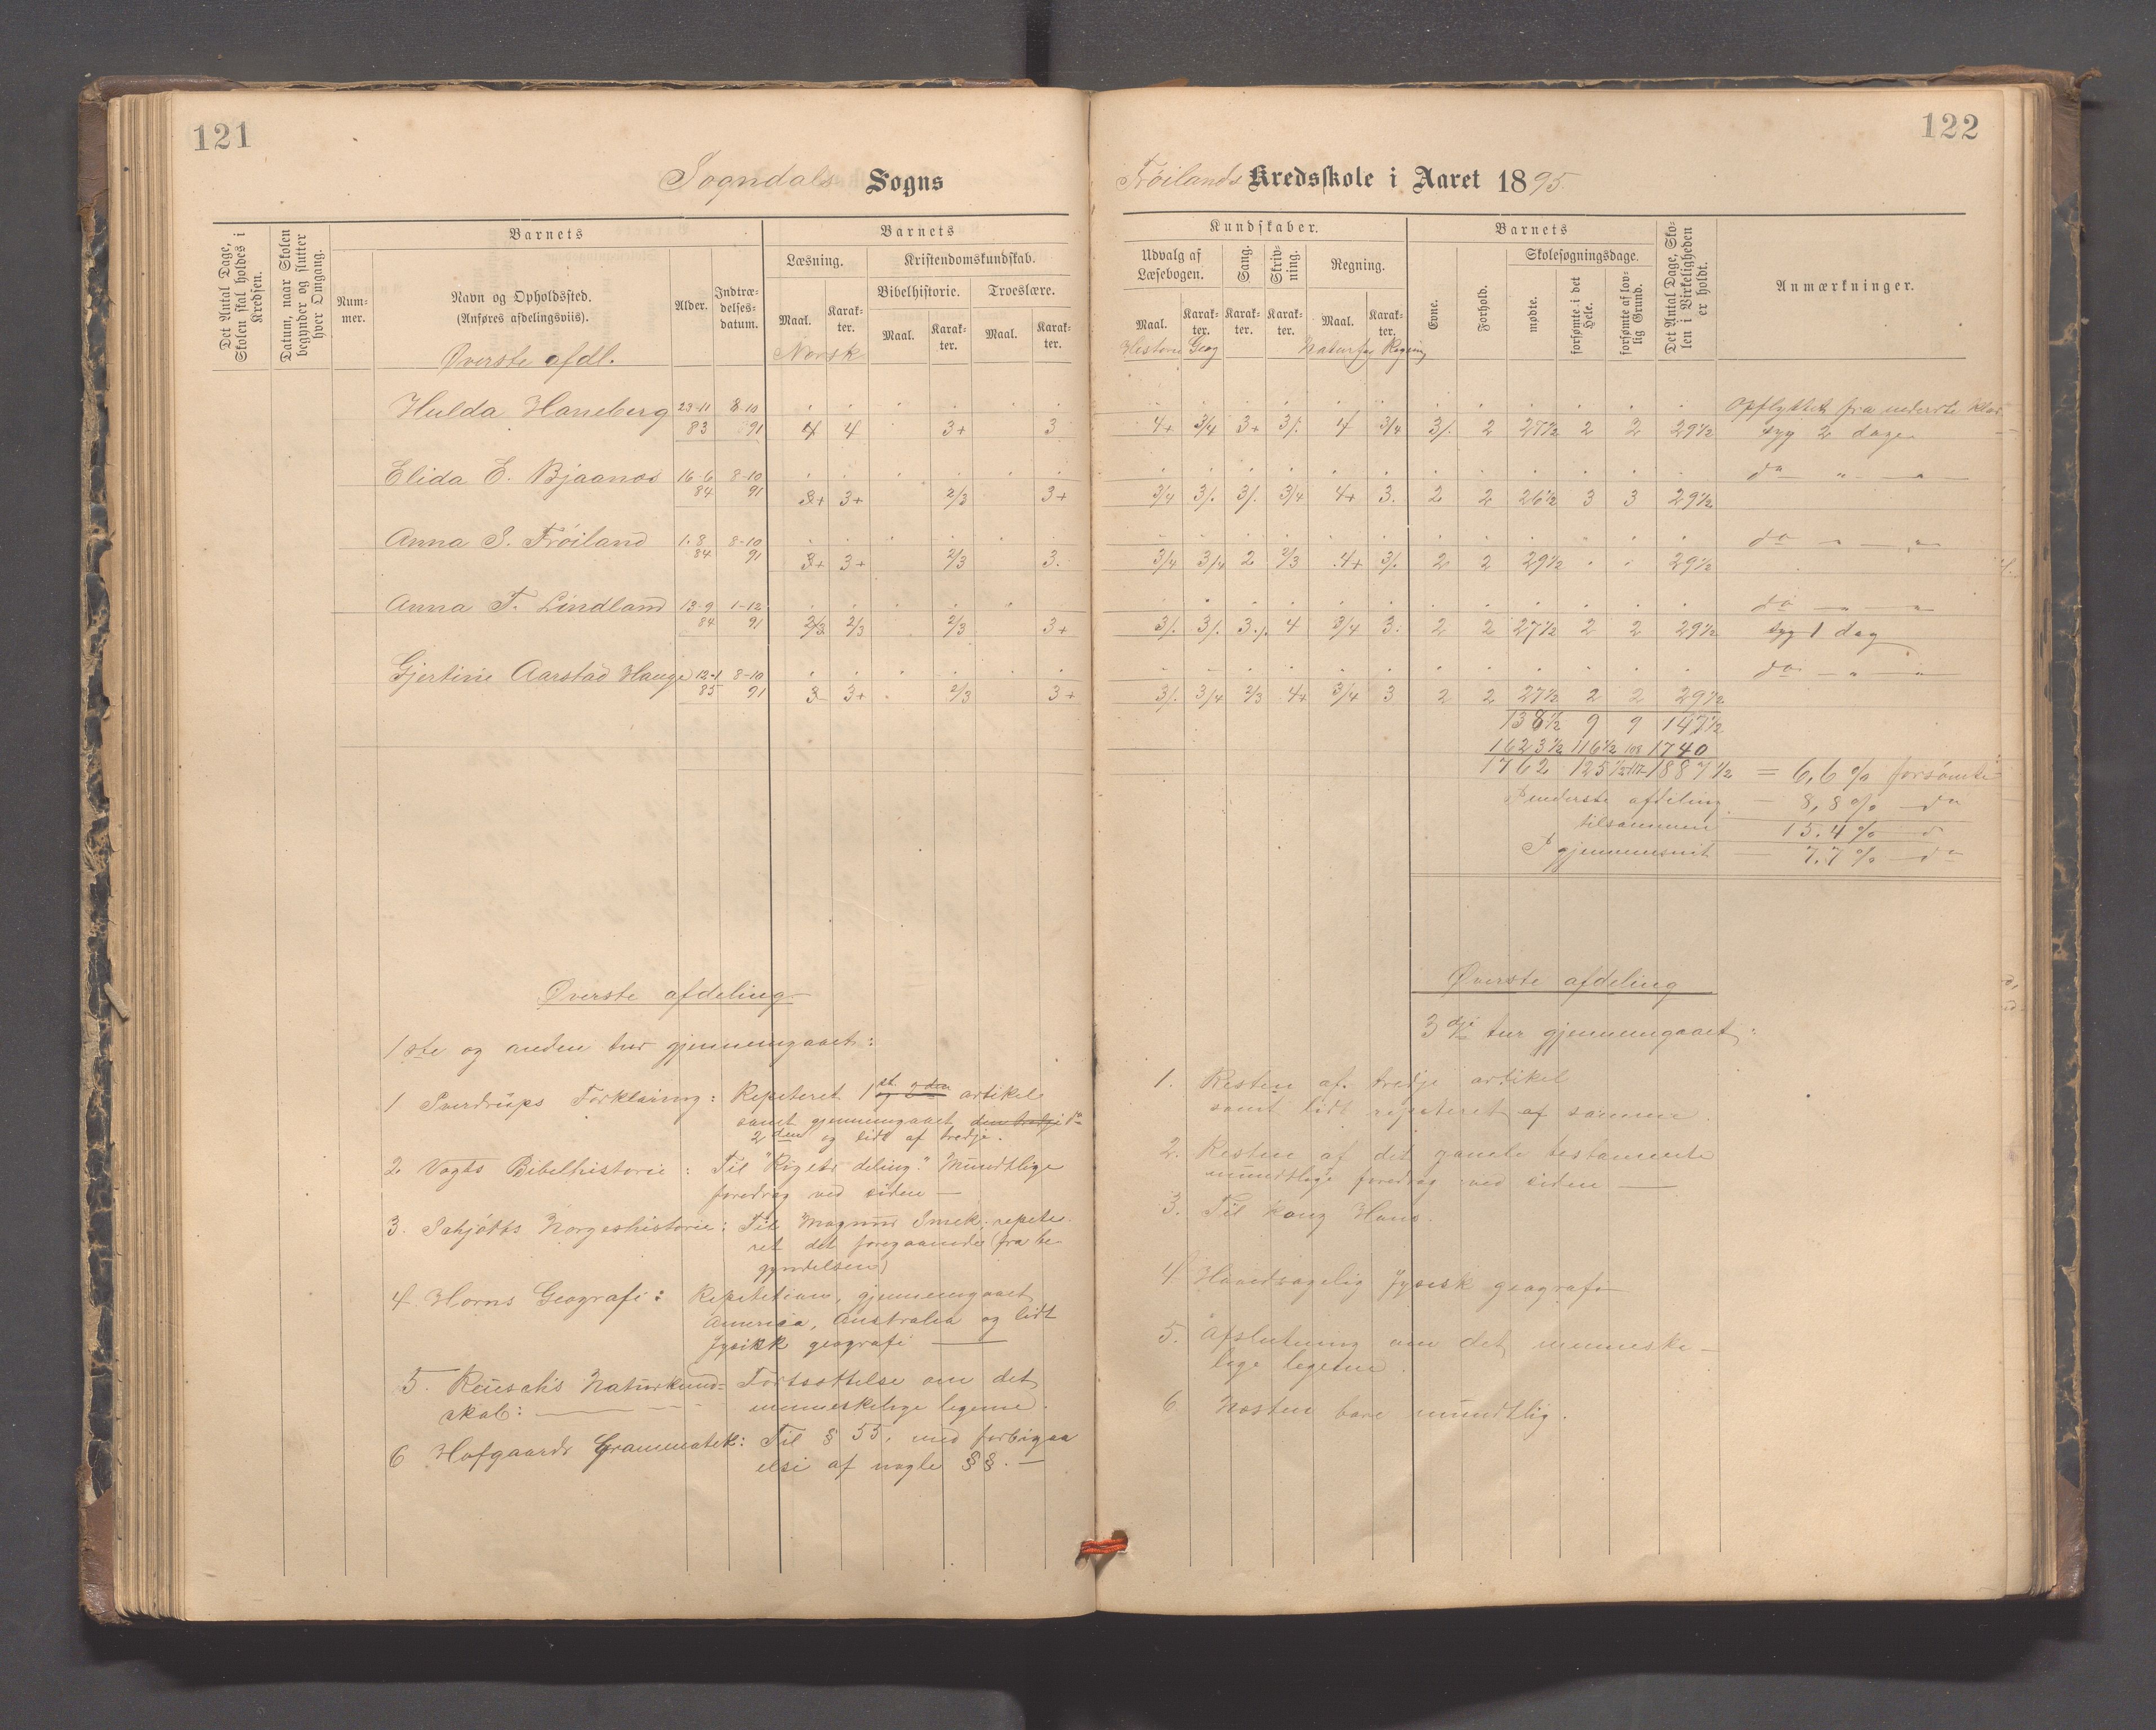 121
Sogndals Sogns
Det Antal Dage, Skolen skal holdes i Kredsen.
Datum, naar Skolen begynder og slutter hver Omgang.
Barnets
Num-mer.
Navn og Opholdssted.
(Anføres afdelingsviis).
Alder.
Indtræ-delses-datum.
Barnets
Læsning.
Kristendomskundskab.
Bibelhistorie.
Troeslære.
Maal.
Karak-ter.
Maal.
Karak-ter.
Maal.
Karak-ter.
Øverste afdl.
Norsk
Hulda Haneberg 23-11 83 8-10 91 4 4 3+ 3
Elida E. Bjaanes 16-6 84 8-10 91 3+ 3+ 2/3 3+
Anna S. Frøiland 1-8 84 8-10 91 3+ 3+ 2/3 3.
Anna T. Lindland 13-9 84 1-12 91 2/3 2/3 2/3 3+
Gjertine Aarstad Hauge 12-1 85 8-10 91 3 3+ 2/3 3+
Øverste afdeling
1ste og anden tur gjennemgaaet:
1 Sverdrups Forklaring: Repeteret 1st og 2den artikel
samt gjennemgaaet den tredje
2den og lidt af tredje.
2 Vogts Bibelhistorie: Til "Rigets deling." Mundtlige
foredrag ved siden —
3. Schjøtts Norgeshistorie: Til Magnus Smek; repete-
ret det foregaaende (fra be-
gyndelsen)
4. Horns Geografi: Repetition, gjennemgaaet
America, Australia og lidt
fysikk geografi —
5. Reusch's Naturkund- Fortsættelse om det
skab: — menneskelige legeme.
6 Hofgaards Grammatik: Til § 55, med forbigaa
else af nogle §§. —
122
Frøilands Kredsskole i Aaret 1895.
Kundskaber.
Udvalg af Læsebogen.
Sang.
Skriv-ning.
Regning.
Maal.
Karak-ter.
Karak-ter.
Karak-ter.
Maal.
Karak-ter.
Barnets
Evne.
Forhold.
Skolesøgningsdage.
mødte.
forsømte i det Hele.
forsømte af lov-lig Grund.
Det Antal Dage, Sko-len i Virkeligheden er holdt.
Anmærkninger.
Historie Geog Naturfag Regning
4+ 3/4 3+ 3/. 4 3/4 3/. 2 27½ 2 2 29½ Opflyttet fra nederste klas.
syg 2 dage
3/4 3/. 3/. 3/4 4+ 3. 2 2 26½ 3 3 29½ do " "
3/4 3/4 2 2/3 4+ 3/. 2 2 29½ . . 29½ do " "
3/. 3/. 3./. 4 3/4 3. 2 2 27½ 2 2 29½ do — "
syg 1 dag
3/. 3/4 2/3 4+ 3/4 3 2 2 27½ 2 2 29½ do — " —
138½ 9 9 147½
1623½ 116½ 108 1740
1762 125½ 117 1887½ = 6,6 % forsømte
I nederste afdeling — 8,8 % — do
tilsammen 15.4 % — d
I gjennemsnit — 7,7 % — do
Øverste afdeling
3dje tur gjennemgaaet:
1. Resten af tredje artikel
samt lidt repeteret af samme.
2. Resten af det gamle testamente
mundtlige foredrag ved siden —
3. Til kong Hans.
4 Hovedsagelig fysisk geografi
5. Afslutning om det menneske-
lige legeme.
6. Næsten bare mundtlig.